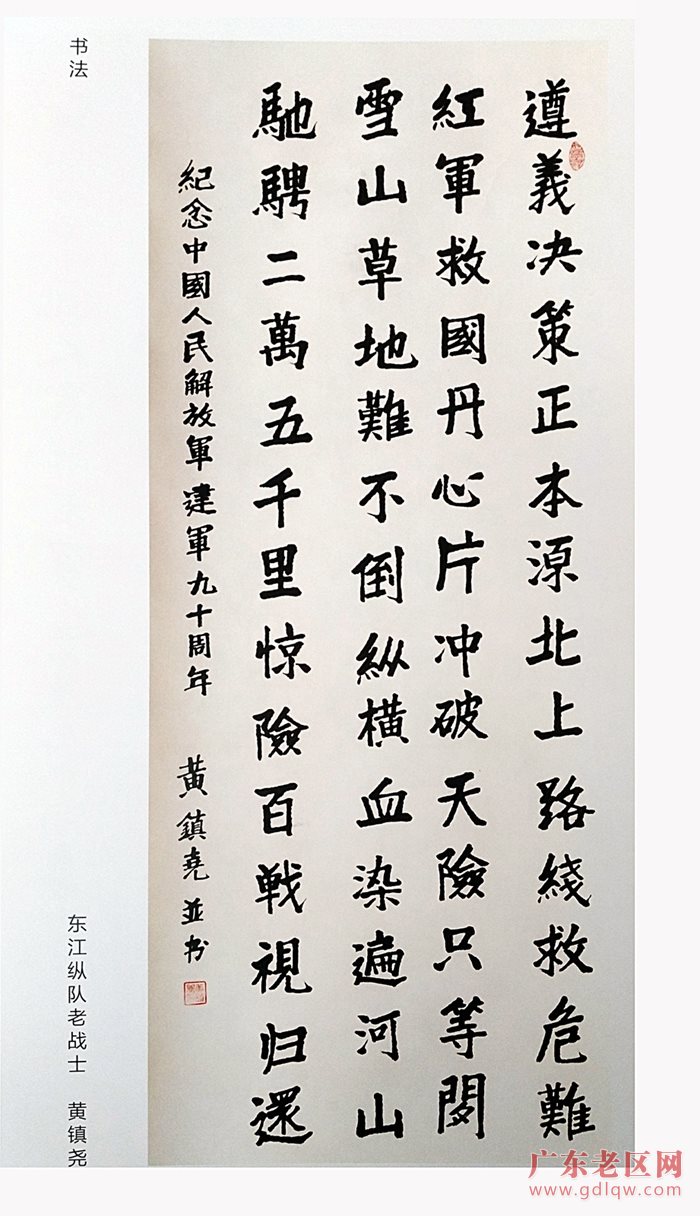 书法
遵義决策正本源北上路綫救危難
紅軍救國丹心片冲破天險只等閑
雪山草地難不倒纵横血染遍河山
馳騁二萬五千里惊險百戦視归還
紀念中國人民解放軍建軍九十周年 黄鎮尧並书
东江纵队老战士 黄镇尧
广东老区网
www.gdlqw.com